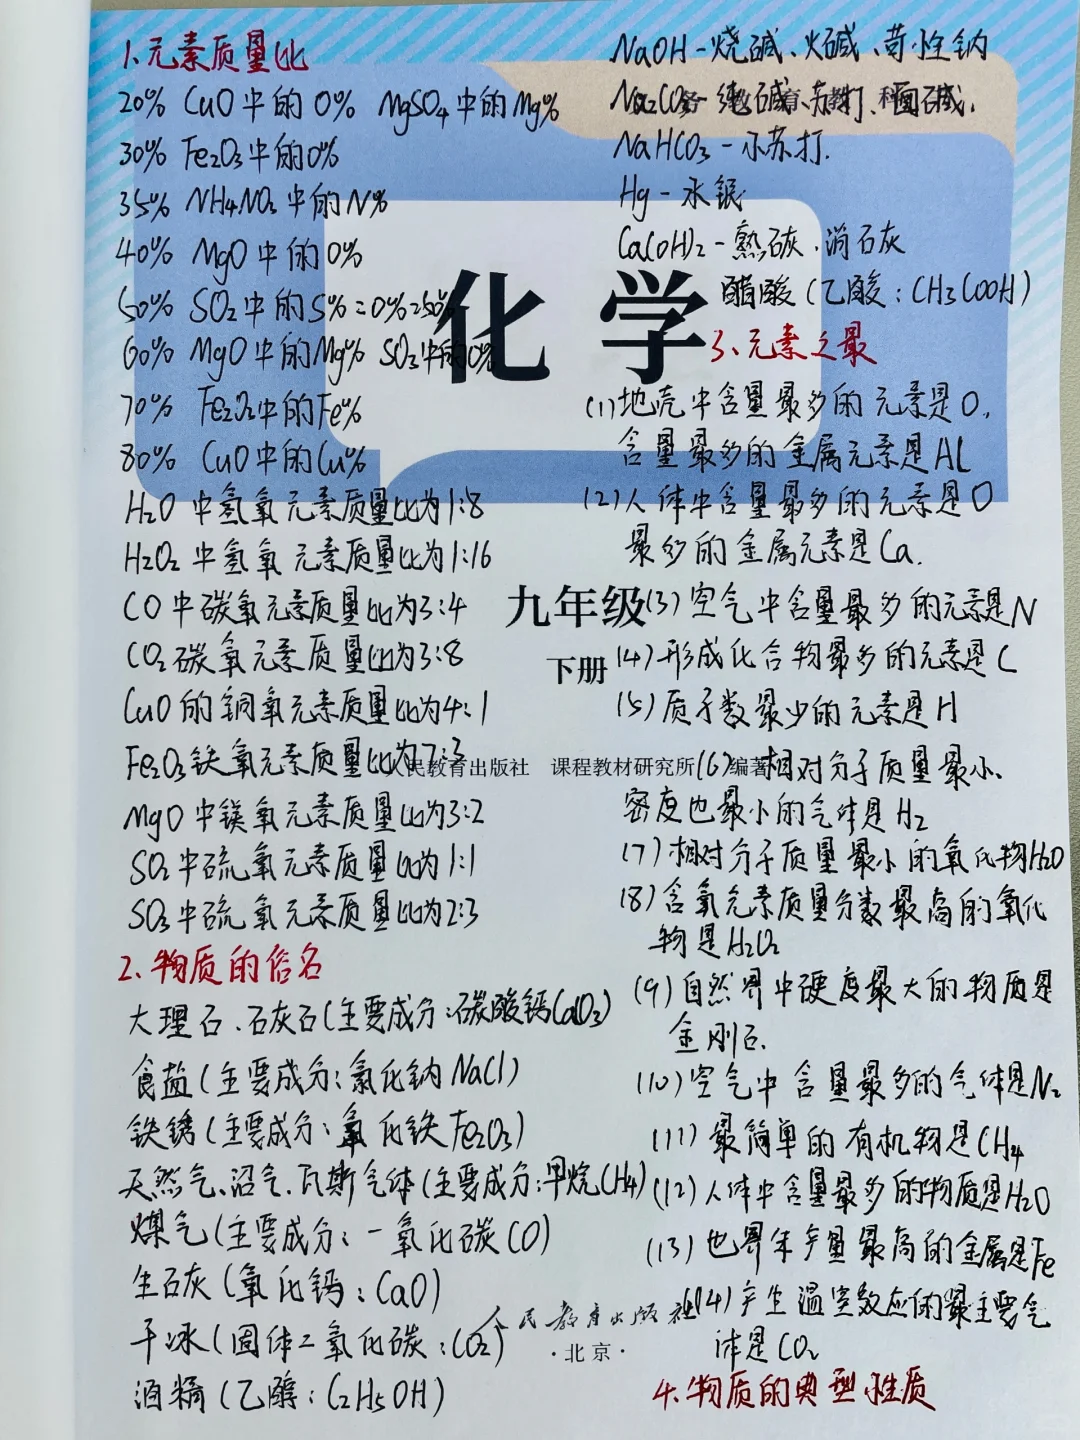 1.元素质量比
20% CuO中的O% MgSO4中的Mg%
30% Fe2O3中的O%
35% NH4NO3中的N%
40% MgO中的O%
50% SO2中的S%=O%=50%
60% MgO中的Mg% SO3中的O%
70% Fe2O3中的Fe%
80% CuO中的Cu%
H2O中氢氧元素质量比为1:8
H2O2中氢氧元素质量比为1:16
CO中碳氧元素质量比为3:4
CO2碳氧元素质量比为3:8
CuO的铜氧元素质量比为4:1
Fe2O3铁氧元素质量比为7:3
MgO中镁氧元素质量比为3:2
SO2中硫氧元素质量比为1:1
SO3中硫氧元素质量比为2:3
2.物质的俗名
大理石、石灰石(主要成分:碳酸钙CaCO3)
食盐(主要成分:氯化钠NaCl)
铁锈(主要成分:氧化铁Fe2O3)
天然气、沼气、瓦斯气体(主要成分:甲烷CH4)
煤气(主要成分:一氧化碳CO)
生石灰(氧化钙:CaO)
干冰(固体二氧化碳:CO2)
酒精(乙醇:C2H5OH)
NaOH-烧碱、火碱、苛性钠
Na2CO3-纯碱、苏打、口碱.
NaHCO3-小苏打.
Hg-水银
Ca(OH)2-熟石灰.消石灰
醋酸(乙酸:CH3COOH)
3、元素之最
(1)地壳中含量最多的元素是O,
含量最多的金属元素是Al
(2)人体中含量最多的元素是O
最多的金属元素是Ca.
(3)空气中含量最多的元素是N
(4)形成化合物最多的元素是C
(5)质子数最少的元素是H
(6)相对分子质量最小、
密度也最小的气体是H2
(7)相对分子质量最小的氧化物H2O
(8)含氧元素质量分数最高的氧化
物是H2O2
(9)自然界中硬度最大的物质是
金刚石.
(10)空气中含量最多的气体是N2
(11)最简单的有机物是CH4
(12)人体中含量最多的物质是H2O
(13)世界年产量最高的金属是Fe
(14)产生温室效应的最主要气
体是CO2
4.物质的典型性质
化学
九年级
下册
人民教育出版社 课程教材研究所 编著
人民教育出版社
·北京·